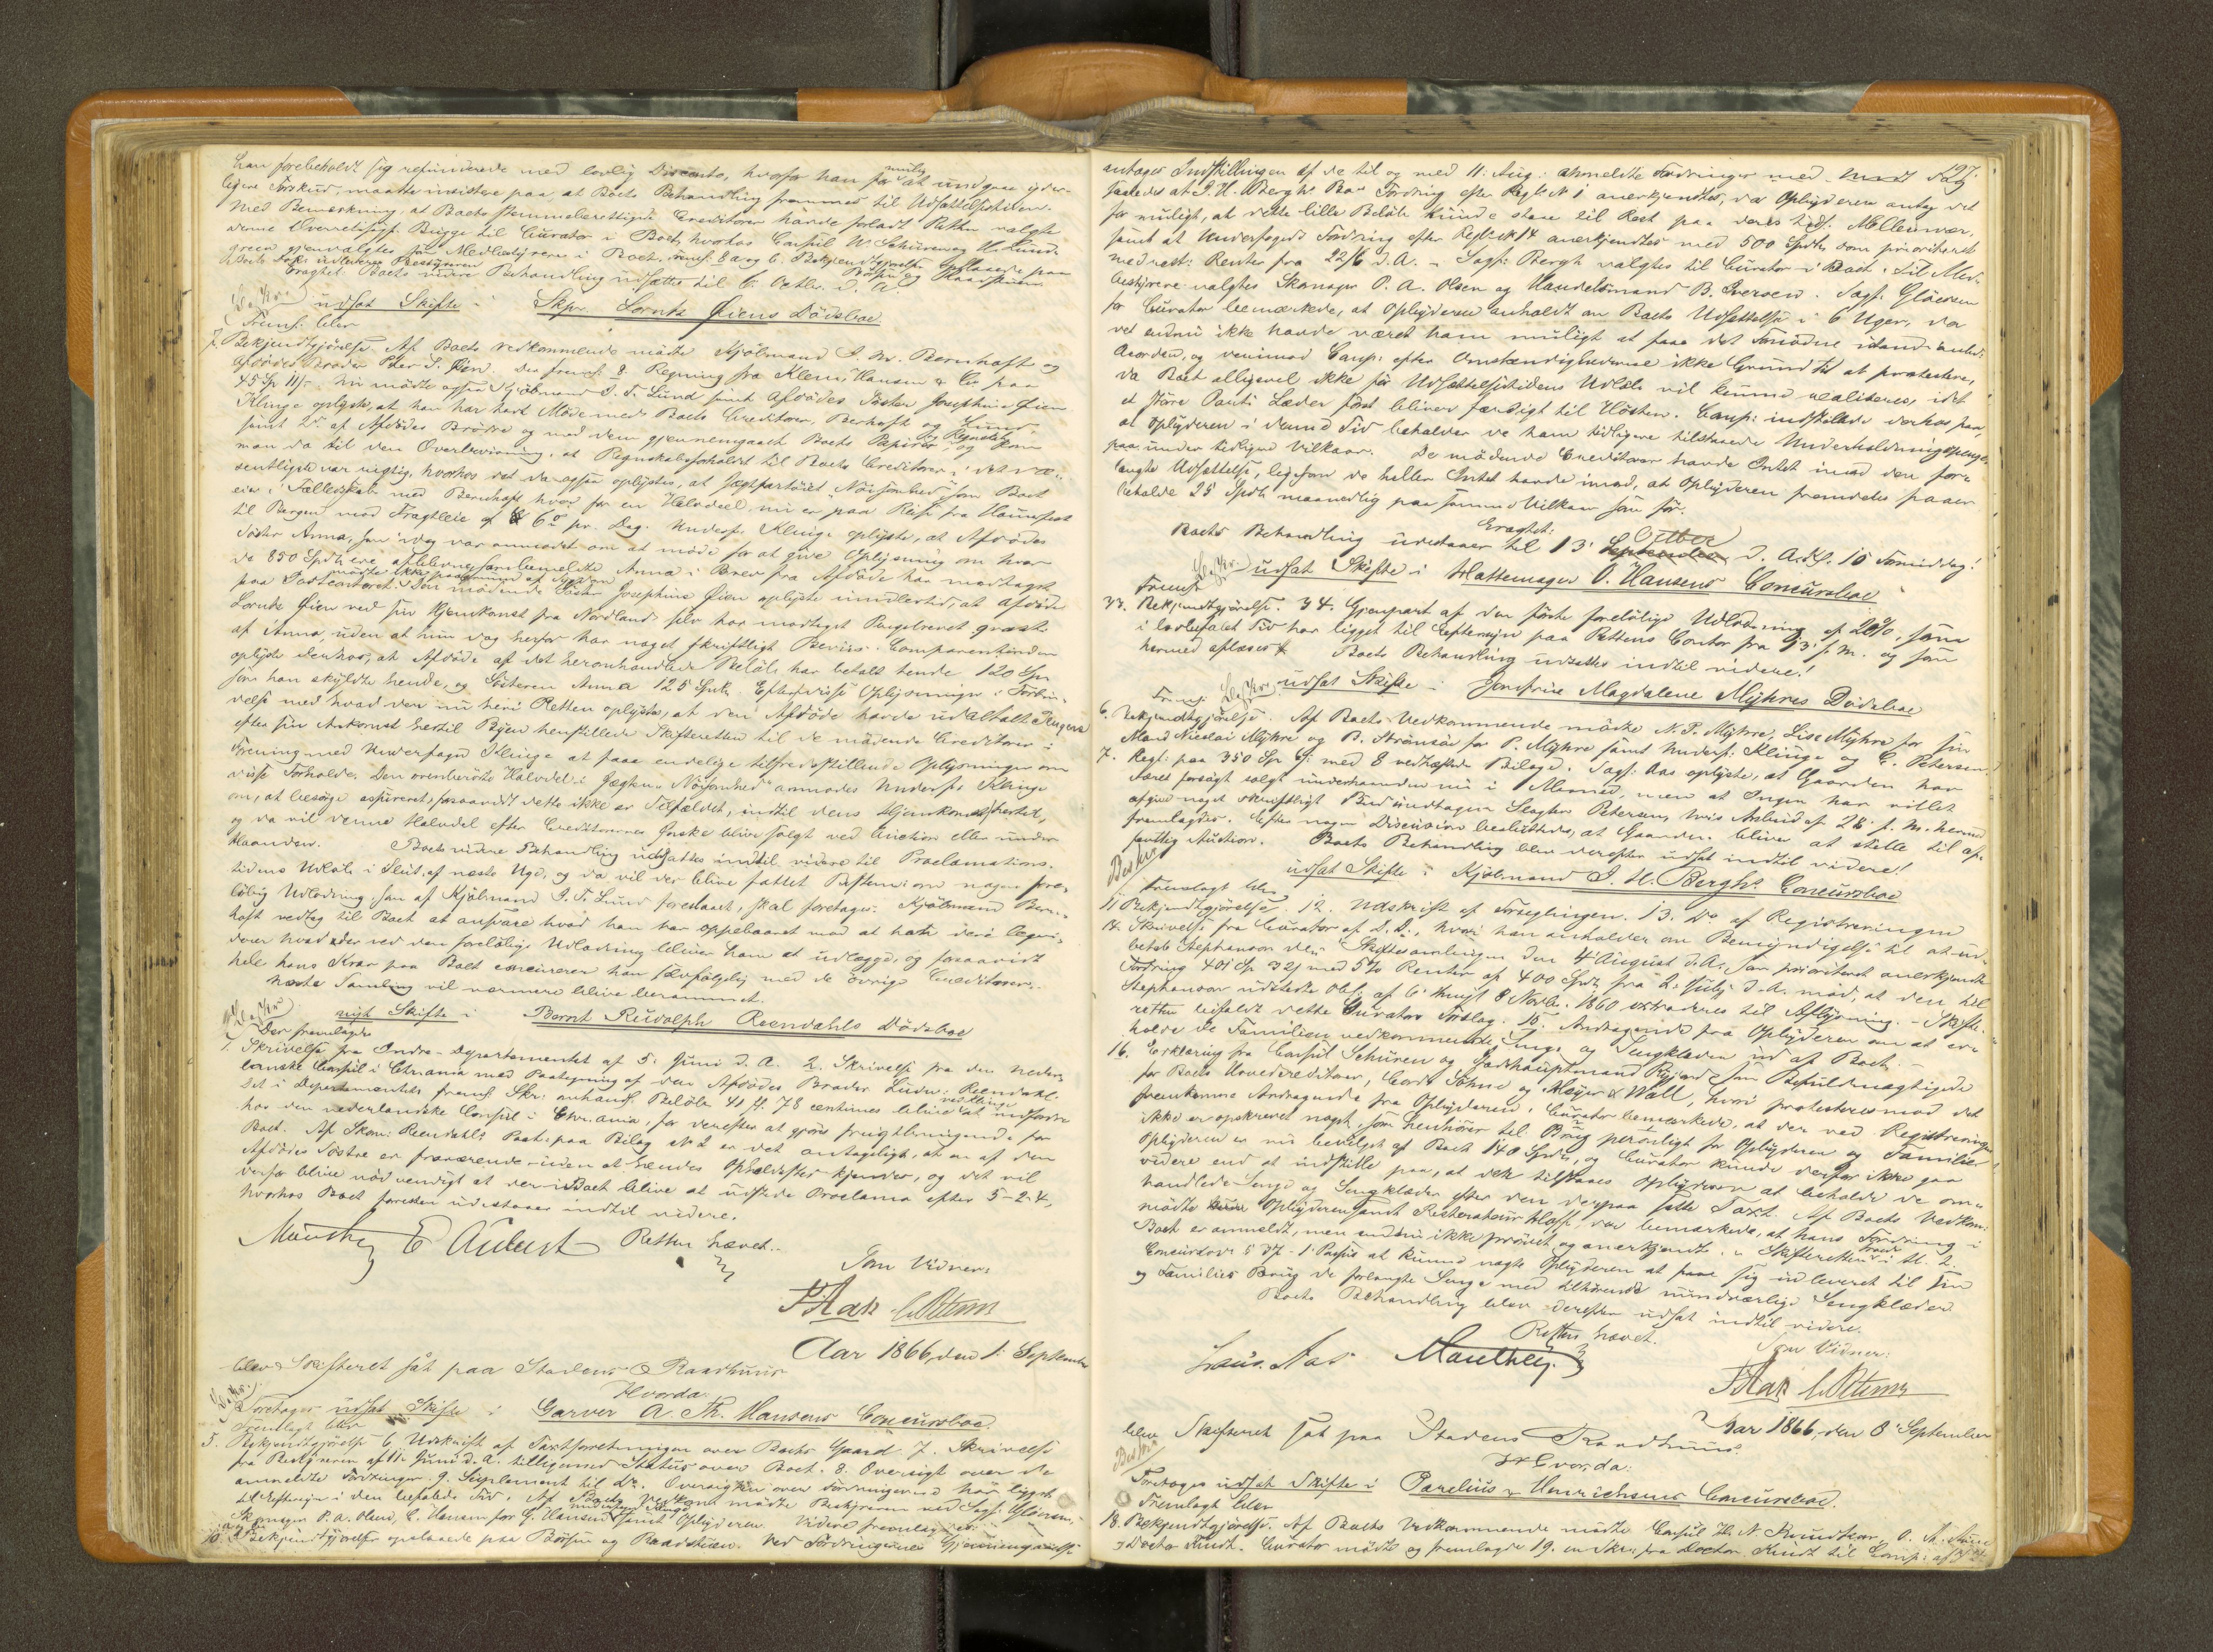 han forebeholdt sig refunderede med lovlig Disconto, hvorfor han for mulig at undgaae yder-
ligere Forskud, maatte insistere paa, at Boets Behandling fremmes til Udsættelsestiden.
Med Bemærkning, at Boets stemmeberettigede Creditorer havde forladt Retten valgte
denne Overretssagf. Brigge til Curator i Boet, hvorhos Consul W. Schüren og H. Lund-
green gjenvalgtes som Medbestyrere i Boet. Fremf. 8 a og b. Bekjendtgjørelse Opslaaede paa
Børsen og Raadstuen.
Eragtet: Boets videre Behandling udsættes til 6. Octbr. d. A.
udsat Skifte i Skpr. Lorntz Øiens Dödsboe
Fremf. blev
7. Bekjendtgjörelse. Af Boets Vedkommende mödte Kjöbmand J. M. Bernhoft og
Afdödes Broder Peder S. Øien. Der fremf. 8. Regning fra Klem, Hansen & Co paa
45 Sp 11 s. Nu mödte ogsaa Kjöbmand J. F. Lund samt Afdödes Söster Josephine Øien
Klinge oplyste, at han har havt Möde med Boets Creditorer, Berhoft og Lund
samt 2de af Afdödes Brödre og med dem gjennemgaaet Boets Papirer, og Regnskab og kom
man da til den Overbeviisning, at Regnskabsforholdet til Boets Creditorer i det væ-
sentligste var rigtig, hvorhos det da ogsaa oplystes, at Jægtfartöiet "Nöisomhed" som Boet
eier i Fælledskab med Bernhoft hver for en Halvdeel nu er paa Reise fra Hammerfest
til Bergen mod Fragtleie af 6 pr. Dag. Undersf. Klinge oplyste, at Afdödes
Söster Anna, som idag var anmodet om at möde for at give Oplysning om hvor
de 850 Spd ere afblevne, som bemeldte Anna i Brev fra Afdöde har modtaget
paa Postcontoret, mödte ikke paa Grund af Sygdom. Den mödende Söster Josephine Øien oplyste imidlertid, at afdöde
Lorntz Øien ved sin Hjemkomst fra Nordland selv har modtaget Pengebrevet
af Anna, uden at hun dog herfor har noget skriftligt Beviis. Comparentinden
oplyste derhos, at Afdöde af det heromhandlede Belöb har betalt hende 120 Spd
som han skyldte hende, og Söster Anna 125 Spd. Efter disse Oplysninger i Forbin-
delse med hvad der nu heri Retten oplystes, at den Afdöde havde udbetalt Pengene
efter sin Ankomst hertil Byen henstillede Skifteretten til de mödende Creditorer i
Forening med Undersagf. Klinge at faae endelige tilfredsstillende Oplysninger om
disse Forholde. Den ovenberörte Halvdel i Jægten "Nöisomhed" anmodes Undersf. Klinge
om, at besörge assureret, forsaavidt dette ikke er Tilfældet, indtil dens Hjemkomst hertil,
og da vil denne Halvdel efter Creditorernes Önske blive solgt ved Auction eller under
Haanden. Boets videre Behandling udsattes indtil videre til Proclamations-
tidens Udløb i Slut. af næste Uge, og da vil der blive fattet Bestem: om nogen fore-
løbig Udlodning som af Kjöbmand J. F. Lund foreslaaet, skal foretages. Kjöbmand Bern-
hoft vedtog til Boet at ansvare hvad han har oppebaaret mod at han deri
derer hvad der ved den foreløbige Udlodning bliver ham at udlægge, og forsaavidt
hele hans Krav paa Boet concurerer han selvfølgelig med de övrige Creditorer.
Næste Samling vil nærmere blive berammet.
nyt Skifte i Bernt Rudolph Reendahls Dödsboe
Der fremlagdes
1. Skrivelse fra Indre-Departementet af 5. Juni d. A. 2. Skrivelse fra den neder-
landske Consul i Chr.ania med Paategning af den Afdödes Broder Ludv. Reendahl.
Det i Departementets fremf. Skr. omhandl. Belöb 41 fl. 78 centimes blive at indfordre
hos den nederlandske Consul i Chr.ania, for derefter at gjöres frugtbringende for
Boet. Af Skom: Reendahls Paat. paa Bilag No 2 er det antageligt, at en af den
Afdödes Söstre er fraværende uden at hendes Opholdssted kjendes, og det vil
derfor blive nödvendigt at der i Boet blive at udstede Proclama efter 5-2-4,
hvorhos Boet foresten udestaaer indtil videre.
Mauthey E August Retten hævet.
Som Vidner:
Aar 1866, den 1. September
blev Skifteret sat paa Stadens Raadhuus
Hvorda:
Foretoges udsat Skifte i Garver A. Th. Hansens Concursboe.
Fremlagt blev
5. Bekjendtgjörelse 6. Udskrift af Taxtforretningen over Boets Gaard. 7. Skrivelse
fra Bestyreren af 11. Juni d. A. tilligemed Status over Boet. 8. Oversigt over de
anmeldte Fordringer. 9. Supplement til Do. Oversigten over Fordringerne har ligget
til Eftersyn i den befalede Tid. Af Boets Vedkom. mödte Bestyreren ved Sagf. Gløersen,
Skomager P. A. Olsen, C. Hansen for G. Hansen samt Oplyderen. Videre fremlagdes
10. a og b. Bekjendtgjörelse opslaaede paa Börsen og Raadstuen. Ved Fordringernes Gjennemgaaelse
197.
antoges Indstillingen af de til og med 11. Aug. anmeldte Fordringer med
saaledes at J. H. Berghs Boes Fordring efter Regl. No 1 anerkjendtes, da Oplyderen antog det
for muligt, at dette lille Belöb kunde staae til Rest paa deres tidl. Mellemvær,
samt at Undersagf. Fordring efter Regl. No 14 anerkjendtes med 500 Spd. som prioriteret
med rest. Renter fra 22/6 d. A. – Sagf. Bergh valgtes til Curator i Boet. Til Med-
bestyrere valgtes Skomager P. A. Olsen og Handelsmand B. Iversen. Sagf. Gløersen
for Curator bemærkede, at Oplyderen anholdt om Boets Udsættelse i 6 Uger, da
det endnu ikke havde været ham muligt at faae det Fornødne istand anled.
Accorden, og derimod Comp: efter Omstændighederne ikke Grund til at protestere,
da Boet alligevel ikke för Udsættelsestidens Udløb vil kunne realiseres, idet
et större Parti Læder först bliver færdigt til Hösten. Comp: indstillede derhos paa,
at Oplyderen i denne Tid beholder de ham tidligere tilstaaede Underholdningspenge
paa under tidligere Vilkaar. De mödende Creditorer havde Intet imod den for-
langte Udsættelse, ligesom de heller Intet havde imod, at Oplyderen fremdeles faaer
beholde 25 Spd. maanedlig paa samme Vilkaar som för.
Eragtet:
Boets Behandling udestaaer til 13. September Octbr. d. A. Kl. 10 Formiddag!
udsat Skifte i Hattemager O. Hansens Concursboe
Fremf.
33. Bekjendtgjörelse. 34. Gjenpart af den förste foreløbige Udlodning af 20 %, som
i lovbefalet Tid har ligget til Eftersyn paa Rettens Contor fra 93 f. M. og som
hermed aflæses. Boets Behandling udsættes indtil videre!
udsat Skifte i Jomfrue Magdalene Myhres Dödsboe
6. Bekjendtgjörelse. Af Boets Vedkommende mödte N. P. Myhre, Lise Myhre for sin
Mand Nicolai Myhre og B. Strömsöe for P. Myhre samt Undersf. Klinge og C. Petersen.
7. Regl: paa 350 Spd 6 s: med 8 vedhæftede Bilage. Sagf: Aas oplyste, at Gaarden har
været forsögt solgt underhaanden nu i 1 Maaned, men at Ingen har villet
afgive noget skriftligt Bud undtagen Slagter Petersen, hvis Anbud af 28. f. M. hermed
fremlagdes. Efter nogen Discussion besluttedes, at Gaarden bliver at stille til of-
fentlig Auction. Boets Behandling blev derefter udsat indtil videre!
udsat Skifte i Kjöbmand J. H. Berghs Concursboe
Fremlagt blev
11. Bekjendtgjörelse. 12. Udskrift af Forseglingen. 13. Do af Registreringen
14. Skrivelse fra Curator af D. D., hvori han anholder om Bemyndigelse til at ud-
betale Stephanson den i Skiftesamlingen den 4 August d. A. som prioriteret anerkjendte
Fordring 401 Sp 32 s med 5 % Renter af 400 Spd fra 2. Juli d. A. mod, at den til
Stephanson udstedte Obl. af 6. thingl. 8 Novbr. 1860 extraderes til Aflysning. – Skifte-
retten bifaldt dette Curators Forslag. 15. Andragende fra Oplyderen om at er-
holde de Familien vedkommende Senge og Sengklæder ud af Boet.
16. Erklæring fra Consul Schüren og Jordhauptmand Rygjord som Befuldmægtigede
for Boets Hovedcreditorer, Cords Söhne og Meyer & Wall, hvori protesteres mod det
fremkomne Andragende fra Oplyderen. Curator bemærkede, at der ved Registreringen
ikke er opskrevet noget, som henhörer til Brug personligt for Oplyderen og Familie.
Oplyderen er nu bevilget af Boet 140 Spd., og Curator kunde derfor ikke gaa
videre end at indstille paa, at det tilstaaes Oplyderen at beholde de om-
handlede Senge og Sengklæder efter den derpaa satte Taxt. Af Boets Vedkom:
mödte Oplyderen samt Restaurateur Hoff, der bemærkede, at hans Fordring i
Boet er anmeldt, men endnu ikke prövet og anerkjendt. – Skifteretten fandt i H. t.
Concurslov § 37-1 Passus at kunne nægte Oplyderen at faae sig udleveret til sin
og Families Brug de forlangte Senge med tilhörende nundværlige Sengklæder.
Boets Behandling blev derefter udsat indtil videre.
Retten hævet.
Som Vidner:
Laur. Aas Mauthey
Aar 1866, den 8 September
blev Skifteret sat paa Stadens Raadhuus.
Hvorda:
Foretoges udsat Skifte i Parelius & Henrichsens Concursboe.
Fremlagt blev
18. Bekjendtgjörelse. Af Boets Vedkommende mödte Consul H. N. Knudtzon, O. A.
og Doctor Kindt. Curator mödte og fremlagde 19. en Skr: fra Doctor Kindt til Comp: af